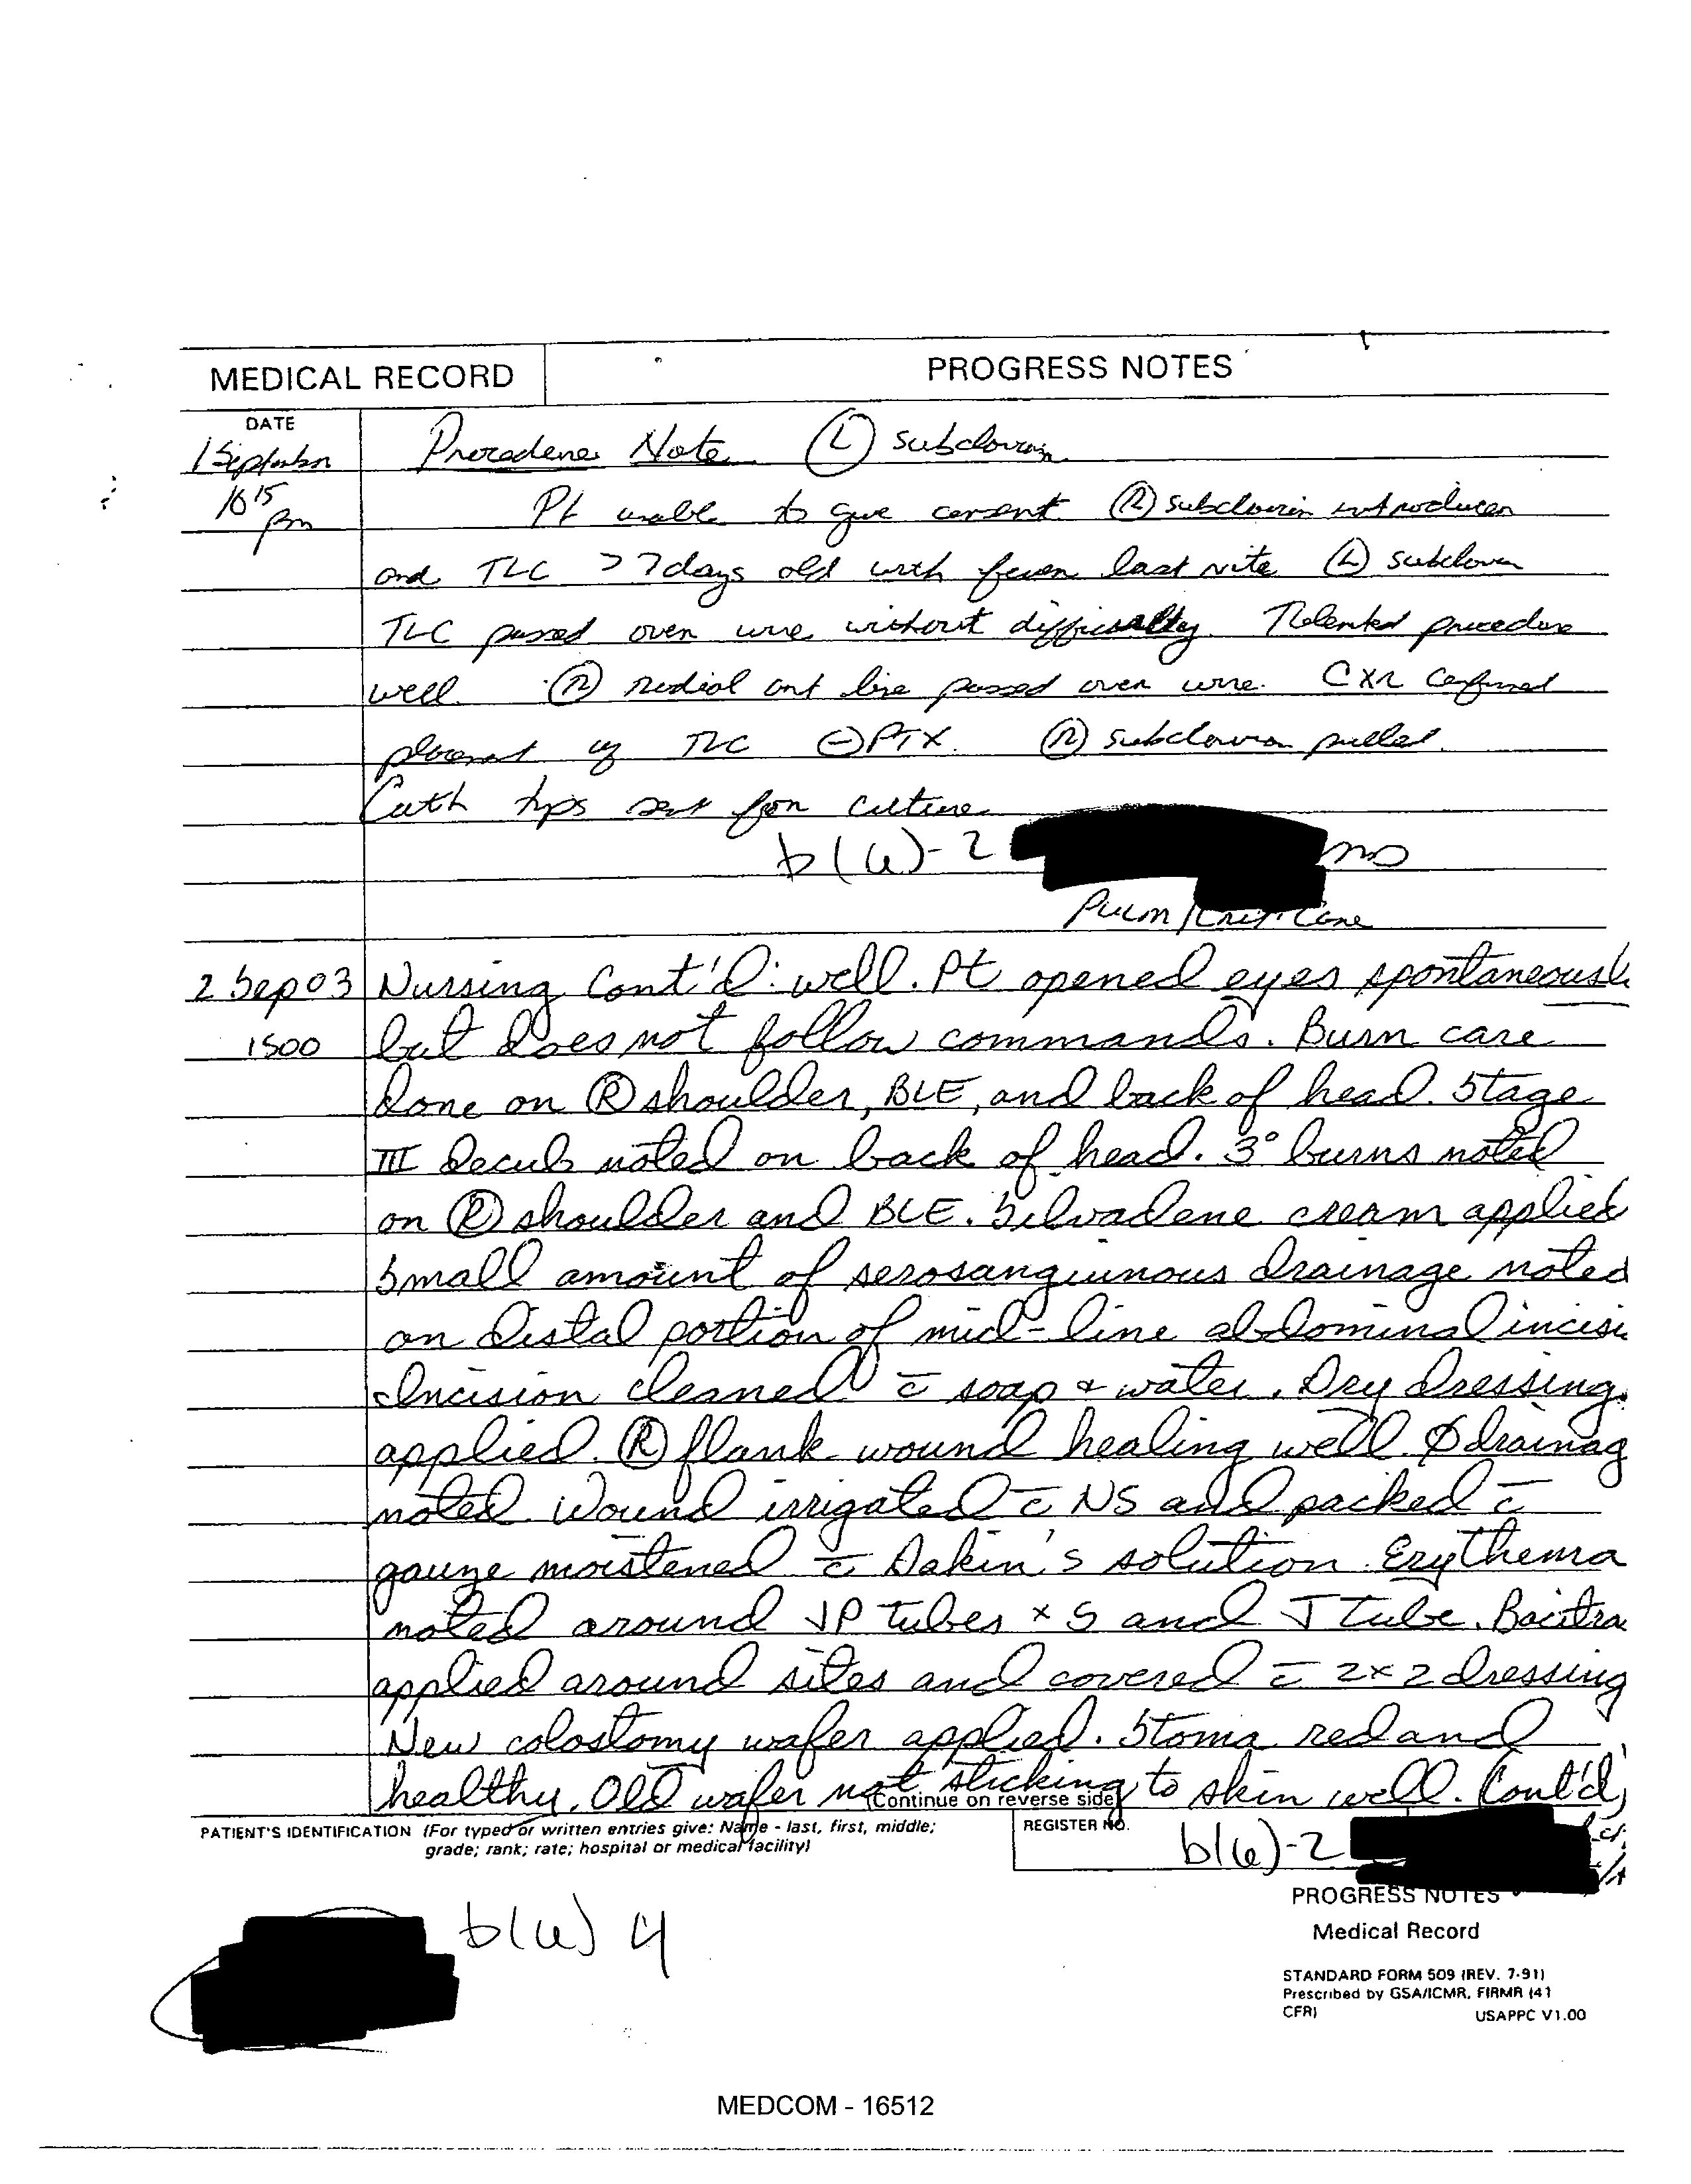 MEDICAL RECORD
PROGRESS NOTES
DATE
1 September
Procedure Note Ⓛ subclavian
10 15 pm
Pt unable to give consent Ⓡ subclavian introducer
and TLC > 7 days old with fever last nite Ⓛ subclavian
TLC passed over wire without difficulty. Tolerated procedure
well. Ⓡ radial art line passed over wire. CXR confirmed
placement of TLC ⊖ PTX. Ⓡ subclavian pulled.
Cath tips sent for culture
b(6)-2 MD
Pulm/Crit Care
2 Sep 03 Nursing Cont'd: well. Pt opened eyes spontaneousl
1500 but does not follow commands. Burn care
done on Ⓡ shoulder, BLE, and back of head. Stage
III decub noted on back of head. 3° burns noted
on Ⓡ shoulder and BLE. Silvadene cream applied
Small amount of serosanguinous drainage noted
on distal portion of mid-line abdominal incisi
Incision cleaned c̄ soap & water. Dry dressing
applied. Ⓡ flank wound healing well ∅ drainag
noted. Wound irrigated c̄ NS and packed c̄
gauze moistened c̄ Dakin's solution. Erythema
noted around JP tubes x 5 and J tube. Bacitra
applied around sites and covered c̄ 2x2 dressing
New colostomy wafer applied. Stoma red and
healthy. Old wafer not sticking to skin well. Cont'd
(Continue on reverse side)
PATIENT'S IDENTIFICATION (For typed or written entries give: Name - last, first, middle;
grade; rank; rate; hospital or medical facility)
REGISTER NO.
b(6)-2
b(6) 4
PROGRESS NOTES
Medical Record
STANDARD FORM 509 (REV. 7-91)
Prescribed by GSA/ICMR, FIRMR (41
CFR)
USAPPC V1.00
MEDCOM - 16512